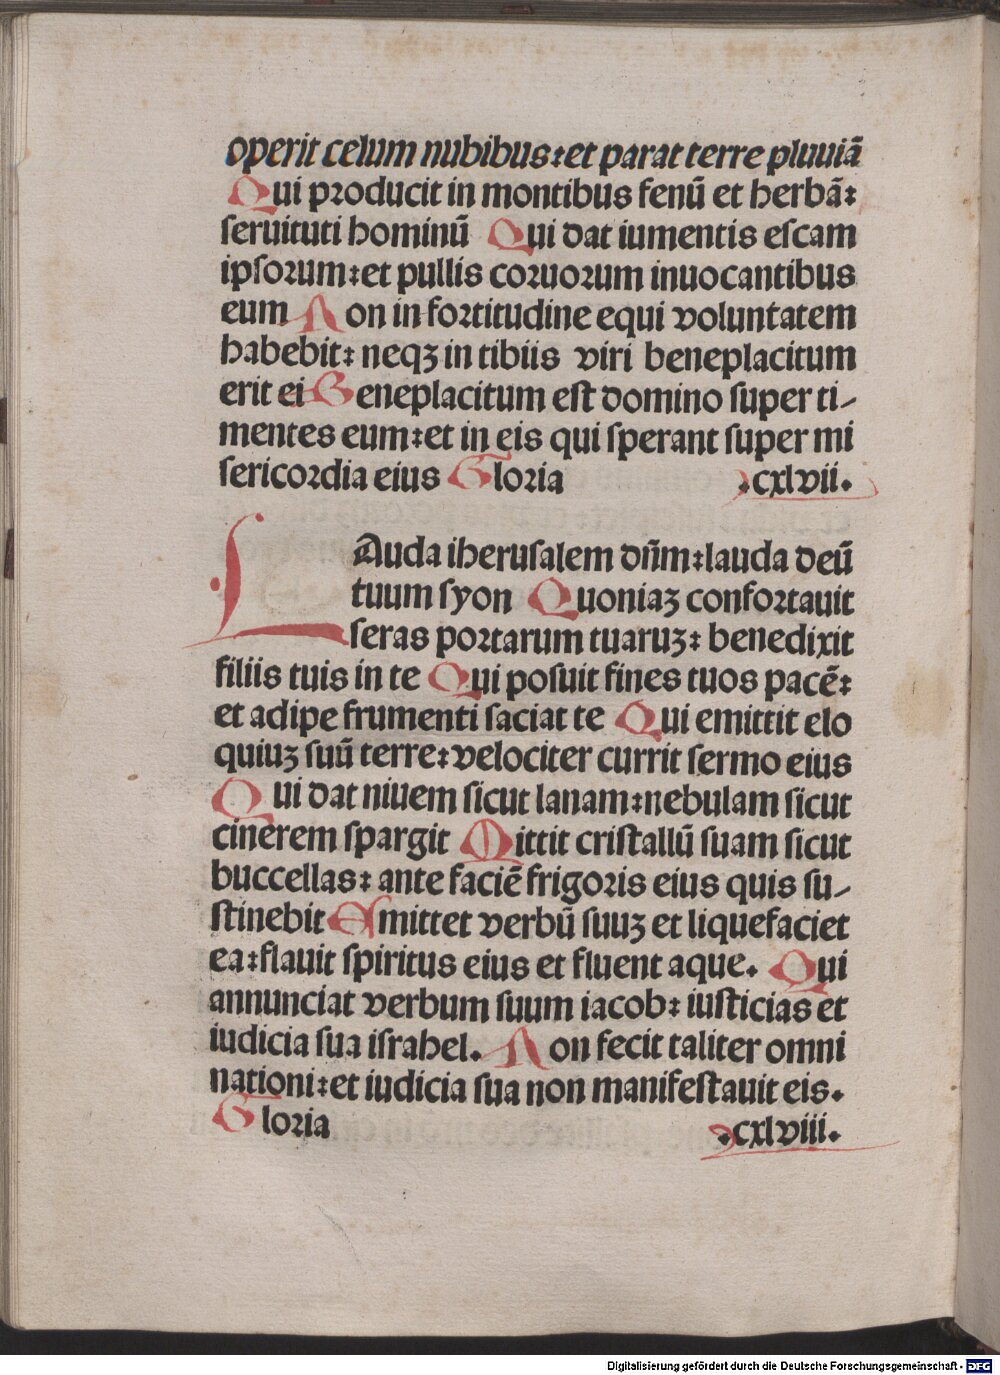 operit celum nubibus: et parat terre pluuiā
Qui producit in montibus fenū et herbā:
seruituti hominū Qui dat iumentis escam
ipsorum: et pullis coruorum inuocantibus
eum Non in fortitudine equi voluntatem
habebit: neqȝ in tibiis viri beneplacitum
erit ei Beneplacitum est domino super ti-
mentes eum: et in eis qui sperant super mi
sericordia eius Gloria .cxlvii.
LAuda iherusalem dn̄m: lauda deū
tuum syon Quoniaȝ confortauit
seras portarum tuaruȝ: benedixit
filiis tuis in te Qui posuit fines tuos pacē:
et adipe frumenti saciat te Qui emittit elo
quiuȝ suū terre: velociter currit sermo eius
Qui dat niuem sicut lanam: nebulam sicut
cinerem spargit Mittit cristallū suam sicut
buccellas: ante faciē frigoris eius quis su-
stinebit Emittet verbū suuȝ et liquefaciet
ea: flauit spiritus eius et fluent aque. Qui
annunciat verbum suum iacob: iusticias et
iudicia sua israhel. Non fecit taliter omni
nationi: et iudicia sua non manifestauit eis.
Gloria .cxlviii.
Digitalisierung gefördert durch die Deutsche Forschungsgemeinschaft - DFG